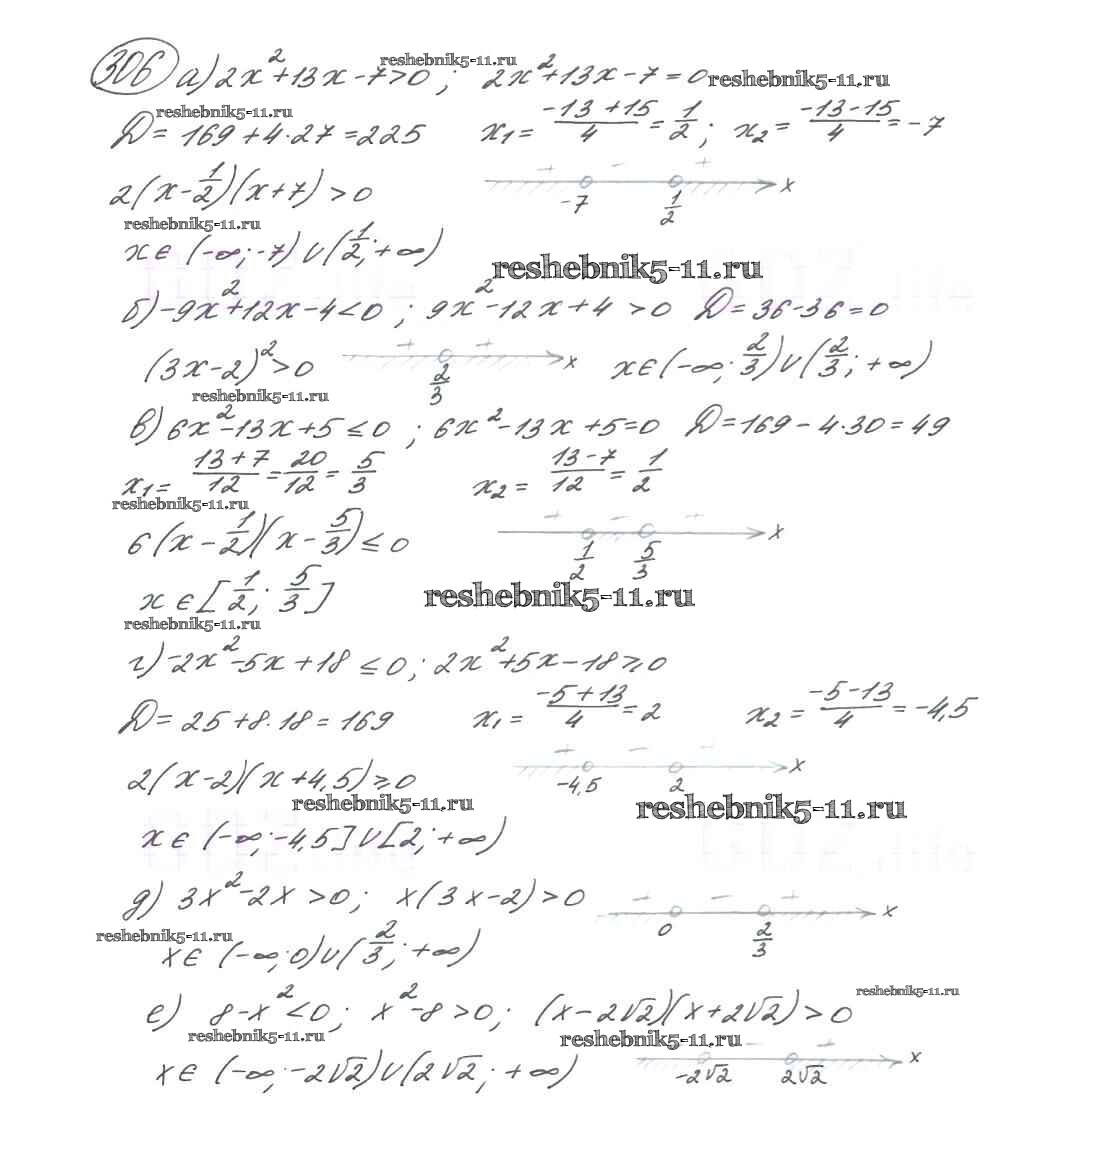 306 а) 2x²+13x-7>0 ; 2x²+13x-7=0
reshebnik5-11.ru
reshebnik5-11.ru
reshebnik5-11.ru
D = 169+4·27=225 x₁= (-13+15)/4 = 1/2 ; x₂= (-13-15)/4 = -7
2(x-1/2)(x+7)>0 + - + -7 1/2 x
reshebnik5-11.ru
x∈(-∞;-7)∪(1/2;+∞)
reshebnik5-11.ru
б) -9x²+12x-4<0 ; 9x²-12x+4>0 D=36-36=0
(3x-2)²>0 + + 2/3 x x∈(-∞;2/3)∪(2/3;+∞)
reshebnik5-11.ru
в) 6x²-13x+5≤0 ; 6x²-13x+5=0 D=169-4·30=49
x₁= (13+7)/12 = 20/12 = 5/3 x₂= (13-7)/12 = 1/2
reshebnik5-11.ru
6(x-1/2)(x-5/3)≤0 + - + 1/2 5/3 x
x∈[1/2;5/3]
reshebnik5-11.ru
reshebnik5-11.ru
г) -2x²-5x+18≤0; 2x²+5x-18≥0
D=25+8·18=169 x₁= (-5+13)/4 = 2 x₂= (-5-13)/4 = -4,5
2(x-2)(x+4,5)≥0 + - -4,5 2 x
reshebnik5-11.ru
reshebnik5-11.ru
x∈(-∞;-4,5]∪[2;+∞)
д) 3x²-2x>0; x(3x-2)>0 + - + 0 2/3 x
reshebnik5-11.ru
x∈(-∞;0)∪(2/3;+∞)
reshebnik5-11.ru
е) 8-x²<0; x²-8>0; (x-2√2)(x+2√2)>0
reshebnik5-11.ru
reshebnik5-11.ru
x∈(-∞;-2√2)∪(2√2;+∞) - + -2√2 2√2 x